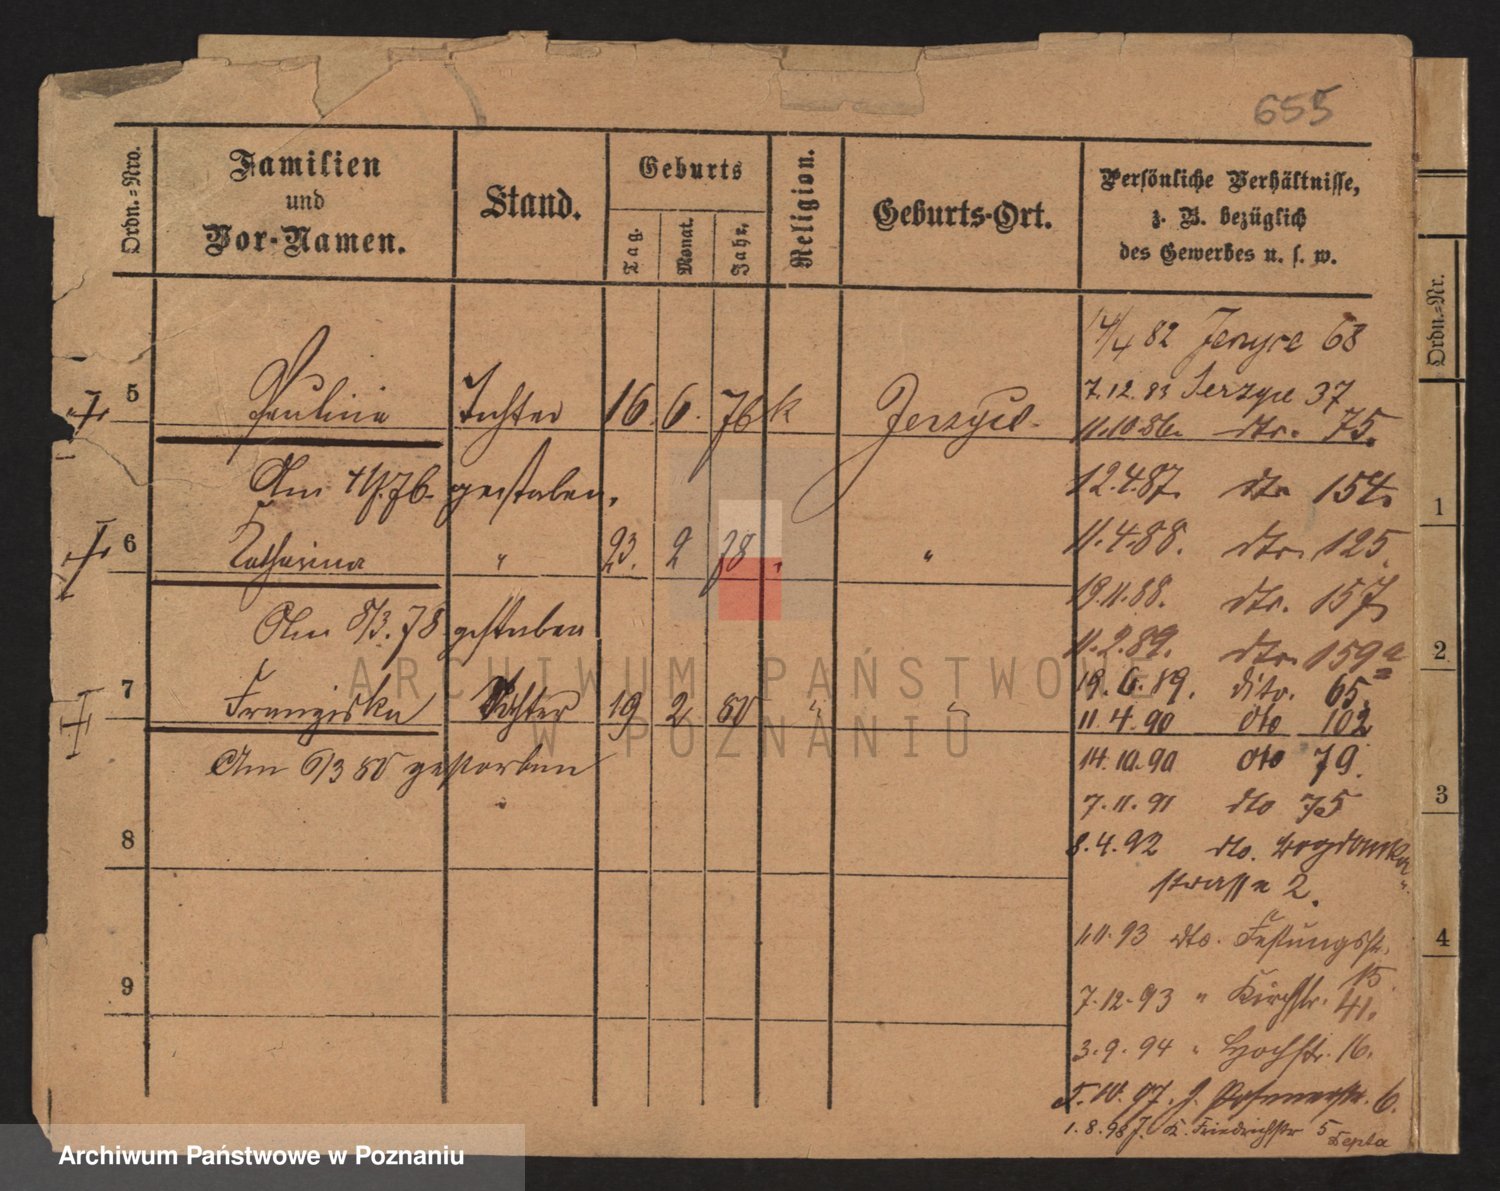 655
Ordn.=Nro.
Familien
und
Vor-Namen.
Stand.
Geburts
Tag.
Monat.
Jahr.
Religion.
Geburts-Ort.
Persönliche Verhältnisse,
z. B. bezüglich
des Gewerbes u. s. w.
Ordn.=Nr.
14/4 82 Jerzyce 68
5 Paulina Tochter 16. 6. 76 k Jerzyce
7.12.83 Jerzyce 37
11.10.86. dto. 75.
Am 76. gestorben.
12.4.87. dto 154.
1
6 Katharina " 23. 2 78 "
11.4.88. dto. 125.
19.11.88. dto. 157
Am 8/3. 78 gestorben
11.2.89. dto. 159a
2
7 Franziska Tochter 19 2 80 " "
19.6.89. dito. 65.
11.4.90 dto 102
Am 6/3 80 gestorben
14.10.90 dto 79.
7.11.91 dto 75
3
8
8.4.92 dto. Bogdanka
strasse 2.
1.11.93 dto. Festungsstr.
15.
4
9
7.12.93 " Kirchstr. 41.
3.9.94 " Hochstr. 16.
5.10.97. J. Posenerstr. 6.
1.8.98 J. K. Friedrichstr 5
ARCHIWUM PAŃSTWOWE
W POZNANIU
Archiwum Państwowe w Poznaniu